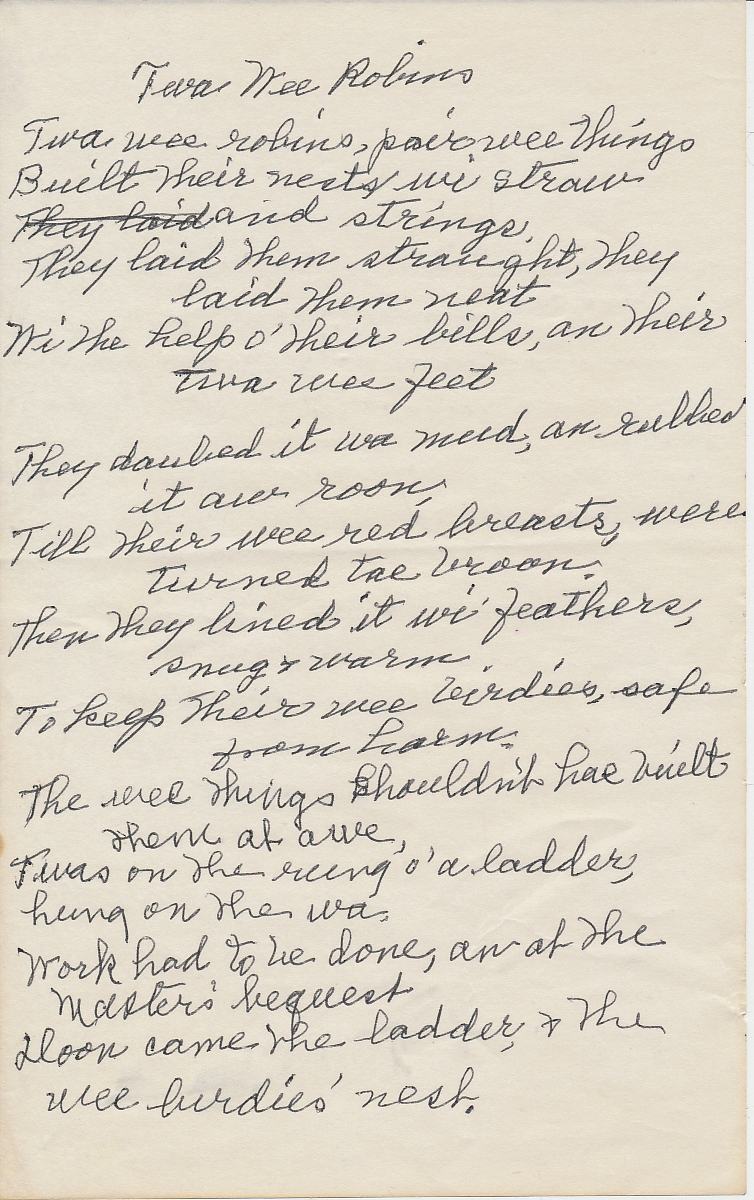 Twa Wee Robins
Twa wee robins, pair wee things
Built their nests wi straw
They laid and strings,
They laid them straught, they
laid them neat
Wi the help o' their bills, an their
twa wee feet
They daubed it wa mud, an rubbed
it aw roon,
Till their wee red breasts, were
turned tae broon.
Then they lined it wi' feathers,
snug & warm.
To keep their wee birdies, safe
from harm.
The wee things shouldn't hae built
them at awe,
Twas on the rung o' a ladder,
hung on the wa.
Work had to be done, an at the
Master's bequest
Doon came the ladder, & the
wee burdies' nest.